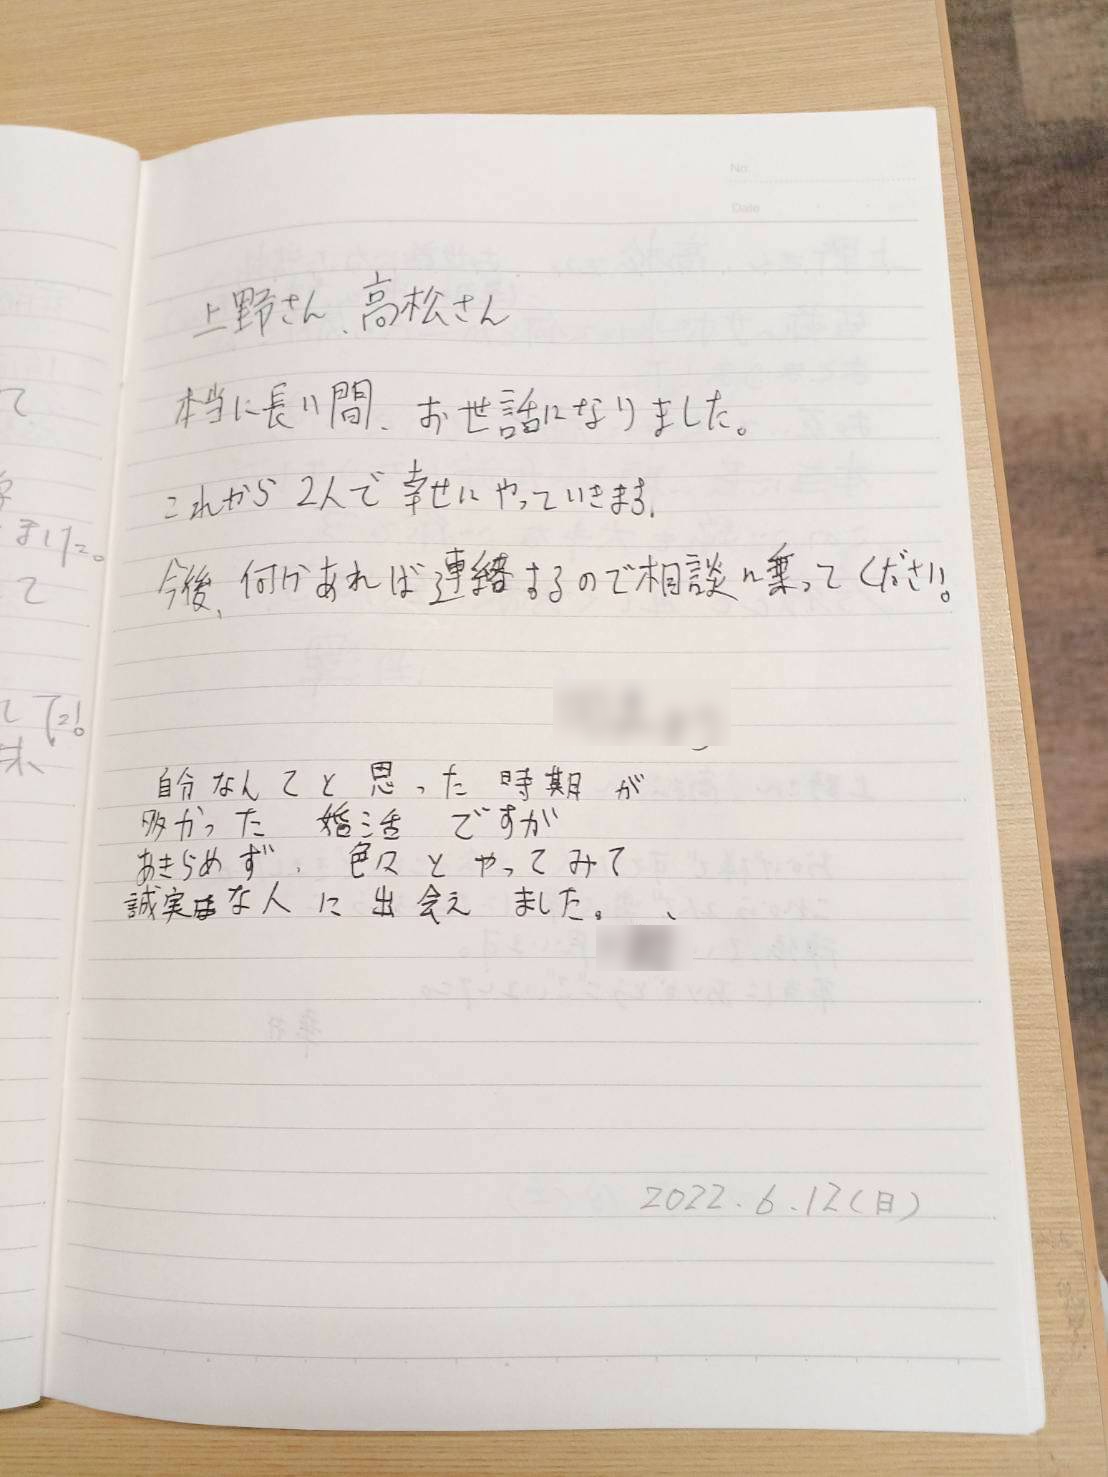 No.
Date
上野さん、高松さん
本当に長い間、お世話になりました。
これから2人で幸せにやっていきます。
今後、何かあれば連絡するので相談に乗ってください。
自分なんてと思った時期が
多かった 婚活 ですが
あきらめず、色々とやってみて
誠実な人に出会えました。
2022.6.12(日)
て
ました。
て